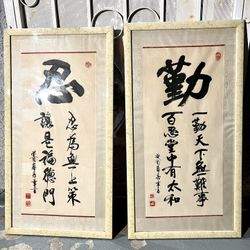 勤
一勤天下無難事
百忍堂中有太和
忍
忍為無上策
讓是福臨門